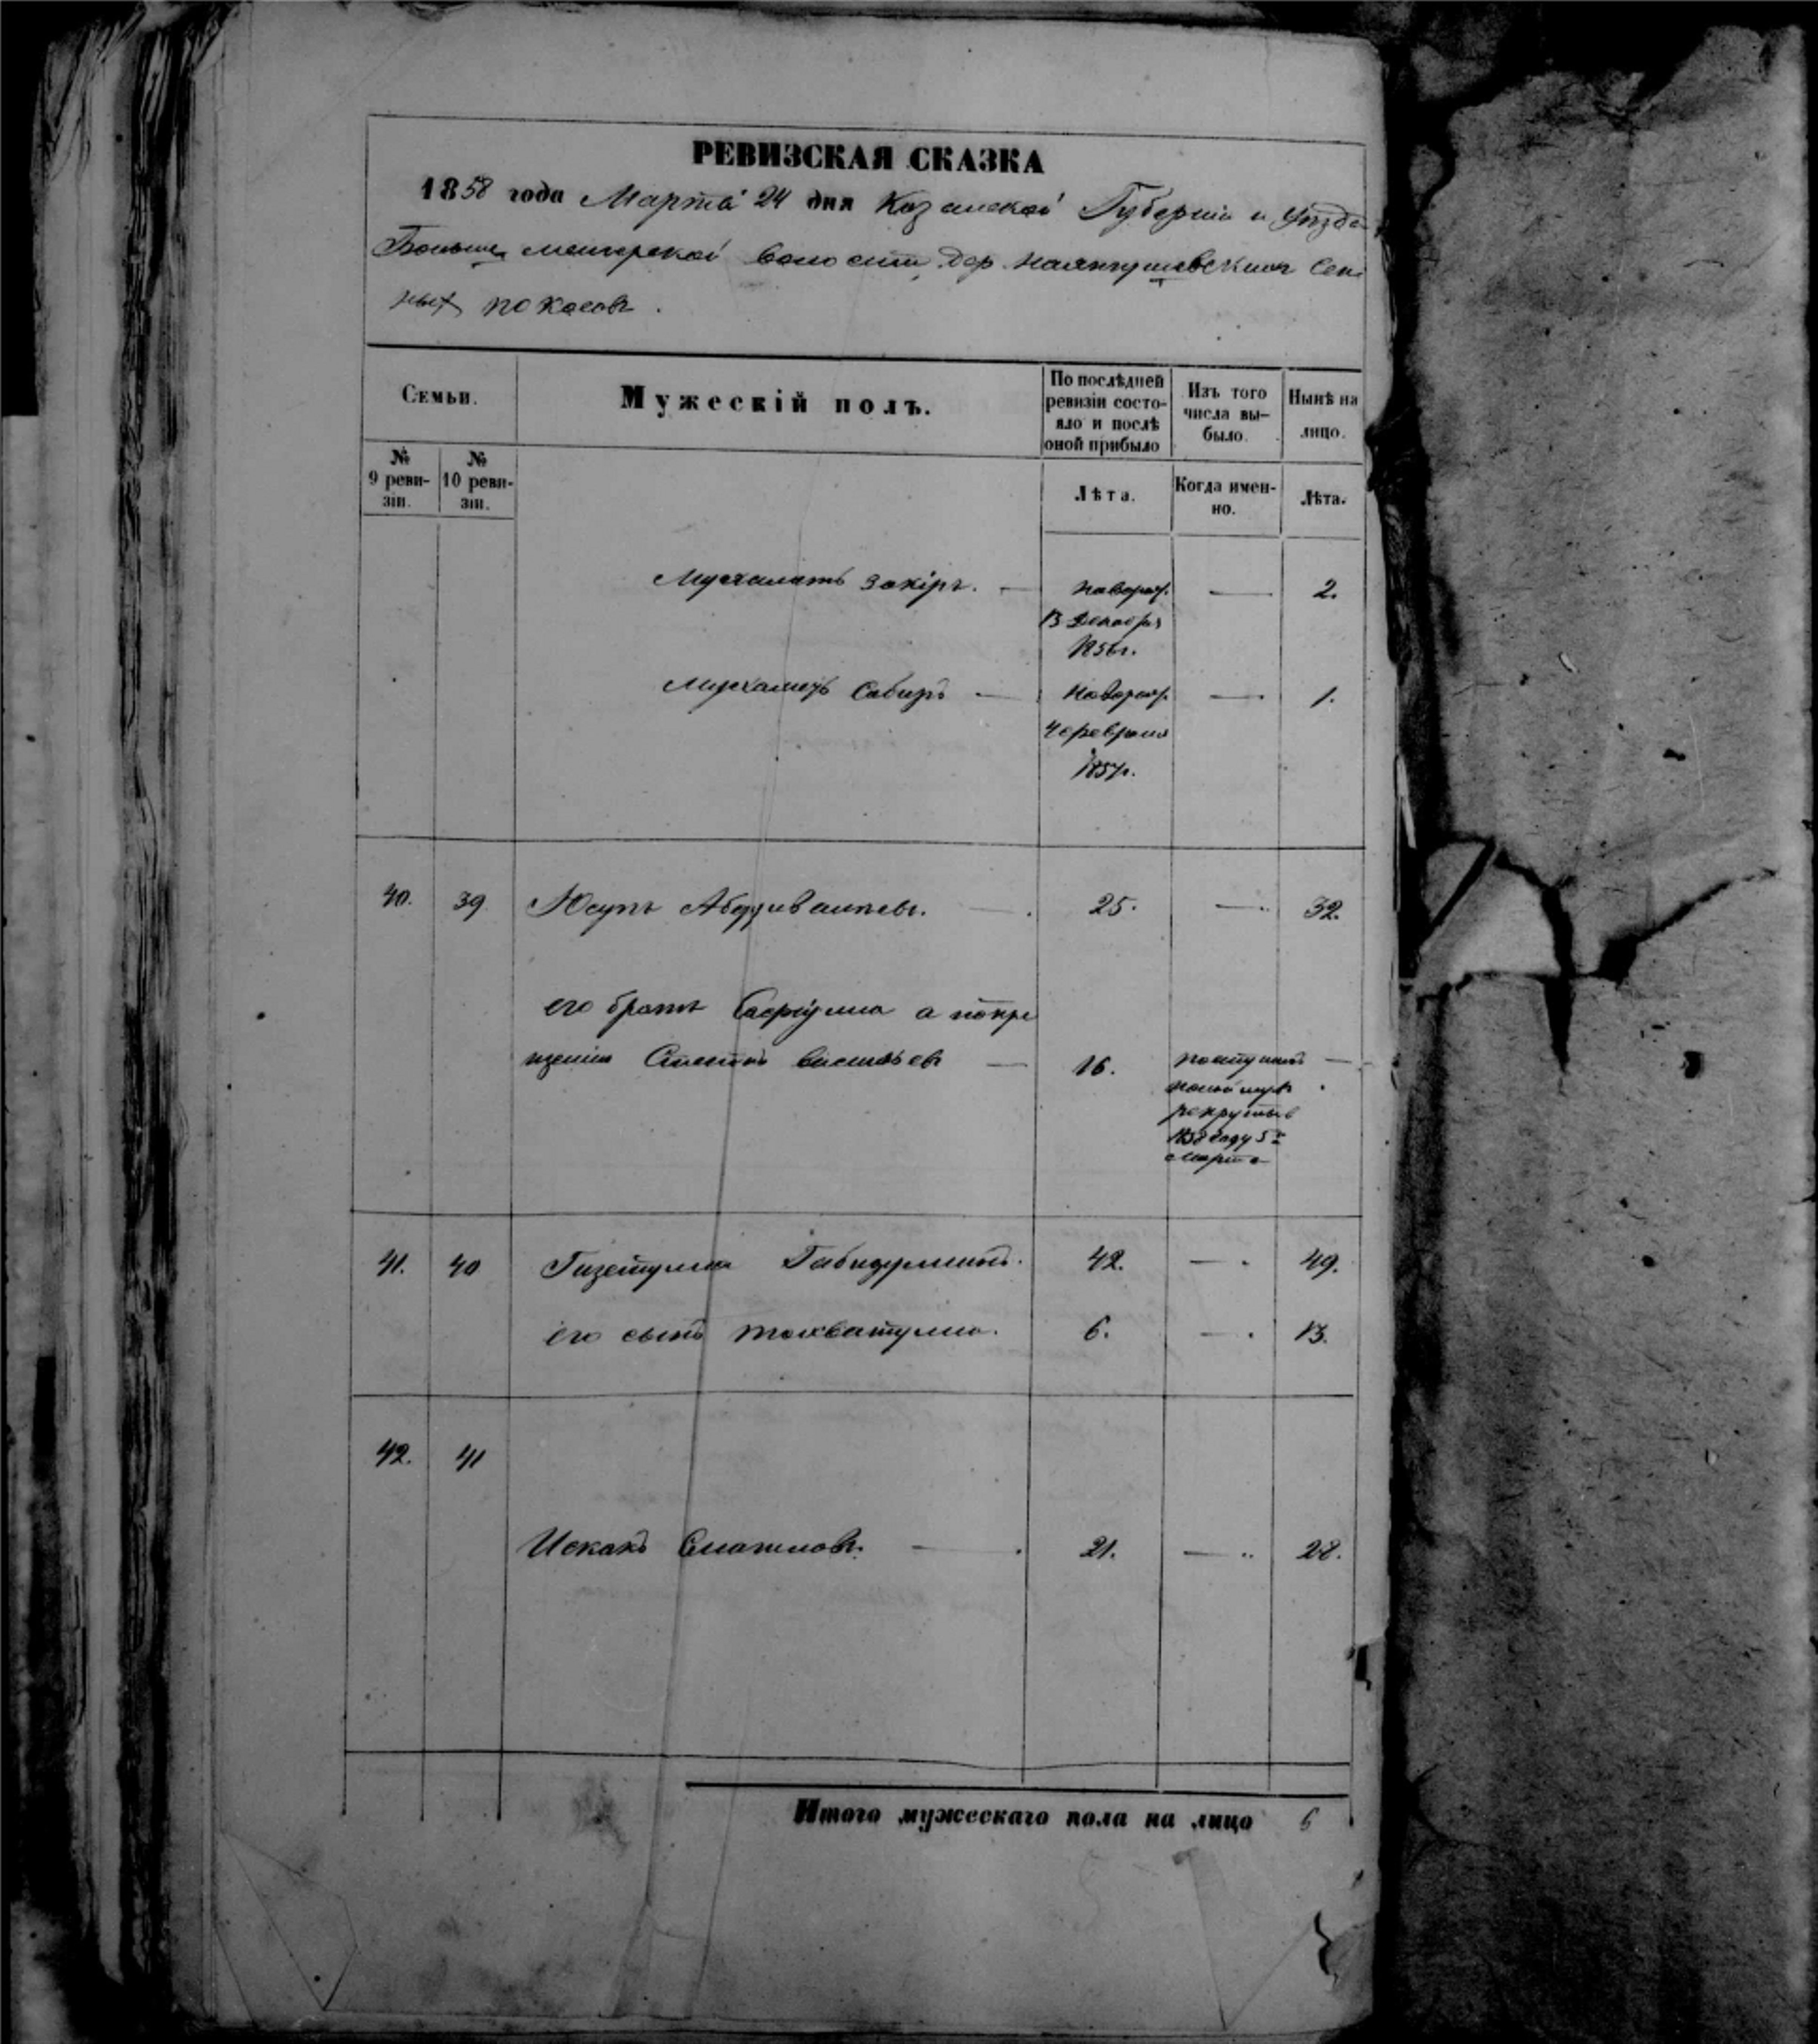 РЕВИЗСКАЯ СКАЗКА
1858 года Марта 24 дня Казанской Губернiи и Уѣзда
Больше менгерской волости, дер. Сен
ныхъ покосовъ.
Семьи.
Мужескiй полъ.
По послѣдней ревизiи состо-
яло и послѣ
оной прибыло
Изъ того
числа вы-
было.
Нынѣ на
лицо.
№
9 реви-
зiи.
№
10 реви-
зiи.
Лѣта.
Когда имен-
но.
Лѣта.
Мухаметъ Закiръ. — новорож. — 2.
В декабря
1856г.
Мухаметъ Сабиръ — новорож. — 1.
февраля
1857г.
40. 39 Юсупъ — 25. — 32.
его братъ а покре
щенiи Васильевъ — 16. поступилъ —
рекруты в
1858 году 5го
Марта
41. 40 Гизетулла Габидуллинъ. 42. — 49.
его сынъ 6. — 13.
42. 41
Искакъ Смаиловъ. — 21. — 28.
Итого мужескаго пола на лицо 6